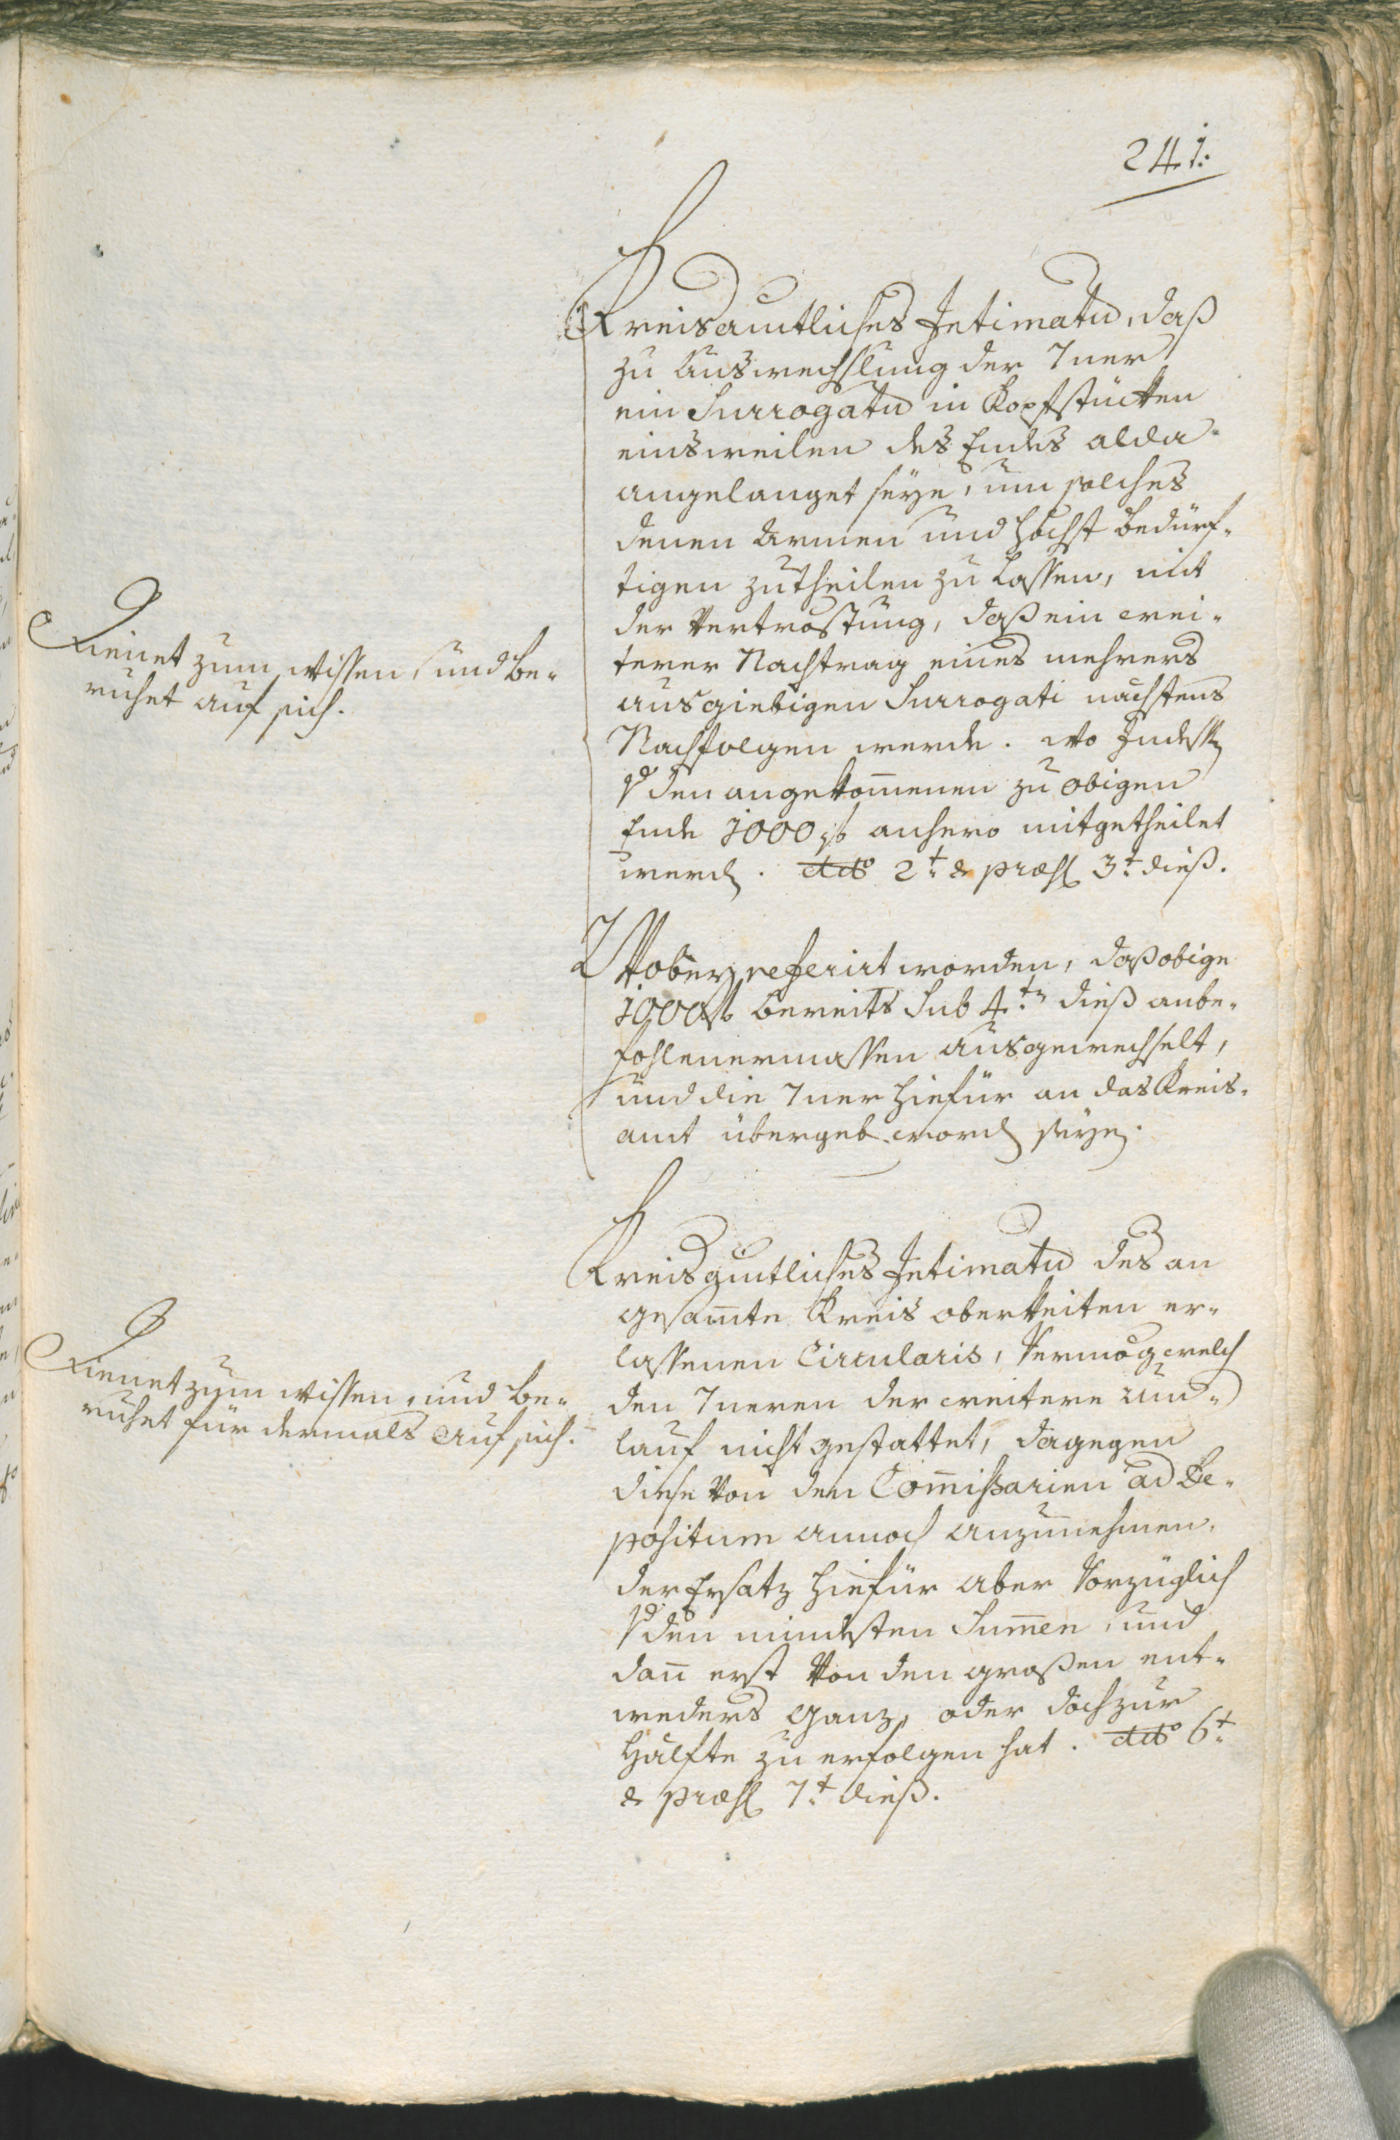 241:
Kreisamtliches Intimatum, daß
zu Auswechslung der 7ner
ein Surrogatum in Kopfstücken
einsweilen des Endes alda
angelanget seye, um solches
denen Armen und höchst bedürf-
tigen zutheilen zu lassen, mit
der Vertröstung, daß ein wei-
terer Nachtrag eines mehrers
ausgiebigen Surrogati nächstens
Nachfolgen werde. wo Indessen
von den angekommenen zu obigen
Ende 1000 f anhero mitgetheilet
werden. ddto 2t & præs 3t dieß.
Dienet zum wissen, und be-
ruhet auf sich.
Wobey referirt worden, daß obige
1000 f bereits sub 4ten dieß anbe-
fohlenermassen ausgewechselt,
und die 7ner hiefür an das Kreis-
amt übergeben worden seyen.
Kreisämtliches Intimatum des an
gesammte Kreis obrkeiten er-
lassenen Circularis, Vermög welch
den 7neren der weitere um-
lauf nicht gestattet, dagegen
diese von den Commissarien ad De-
positum annoch anzunehmen,
der Ersatz hiefür aber vorzüglich
von den mindesten Summen, und
dann erst von den großen ent-
weders ganz, oder doch zur
Hälfte zu erfolgen hat. ddto 6t
& præs 7t dieß.
Dienet zum wissen, und be-
ruhet für dermals auf sich.